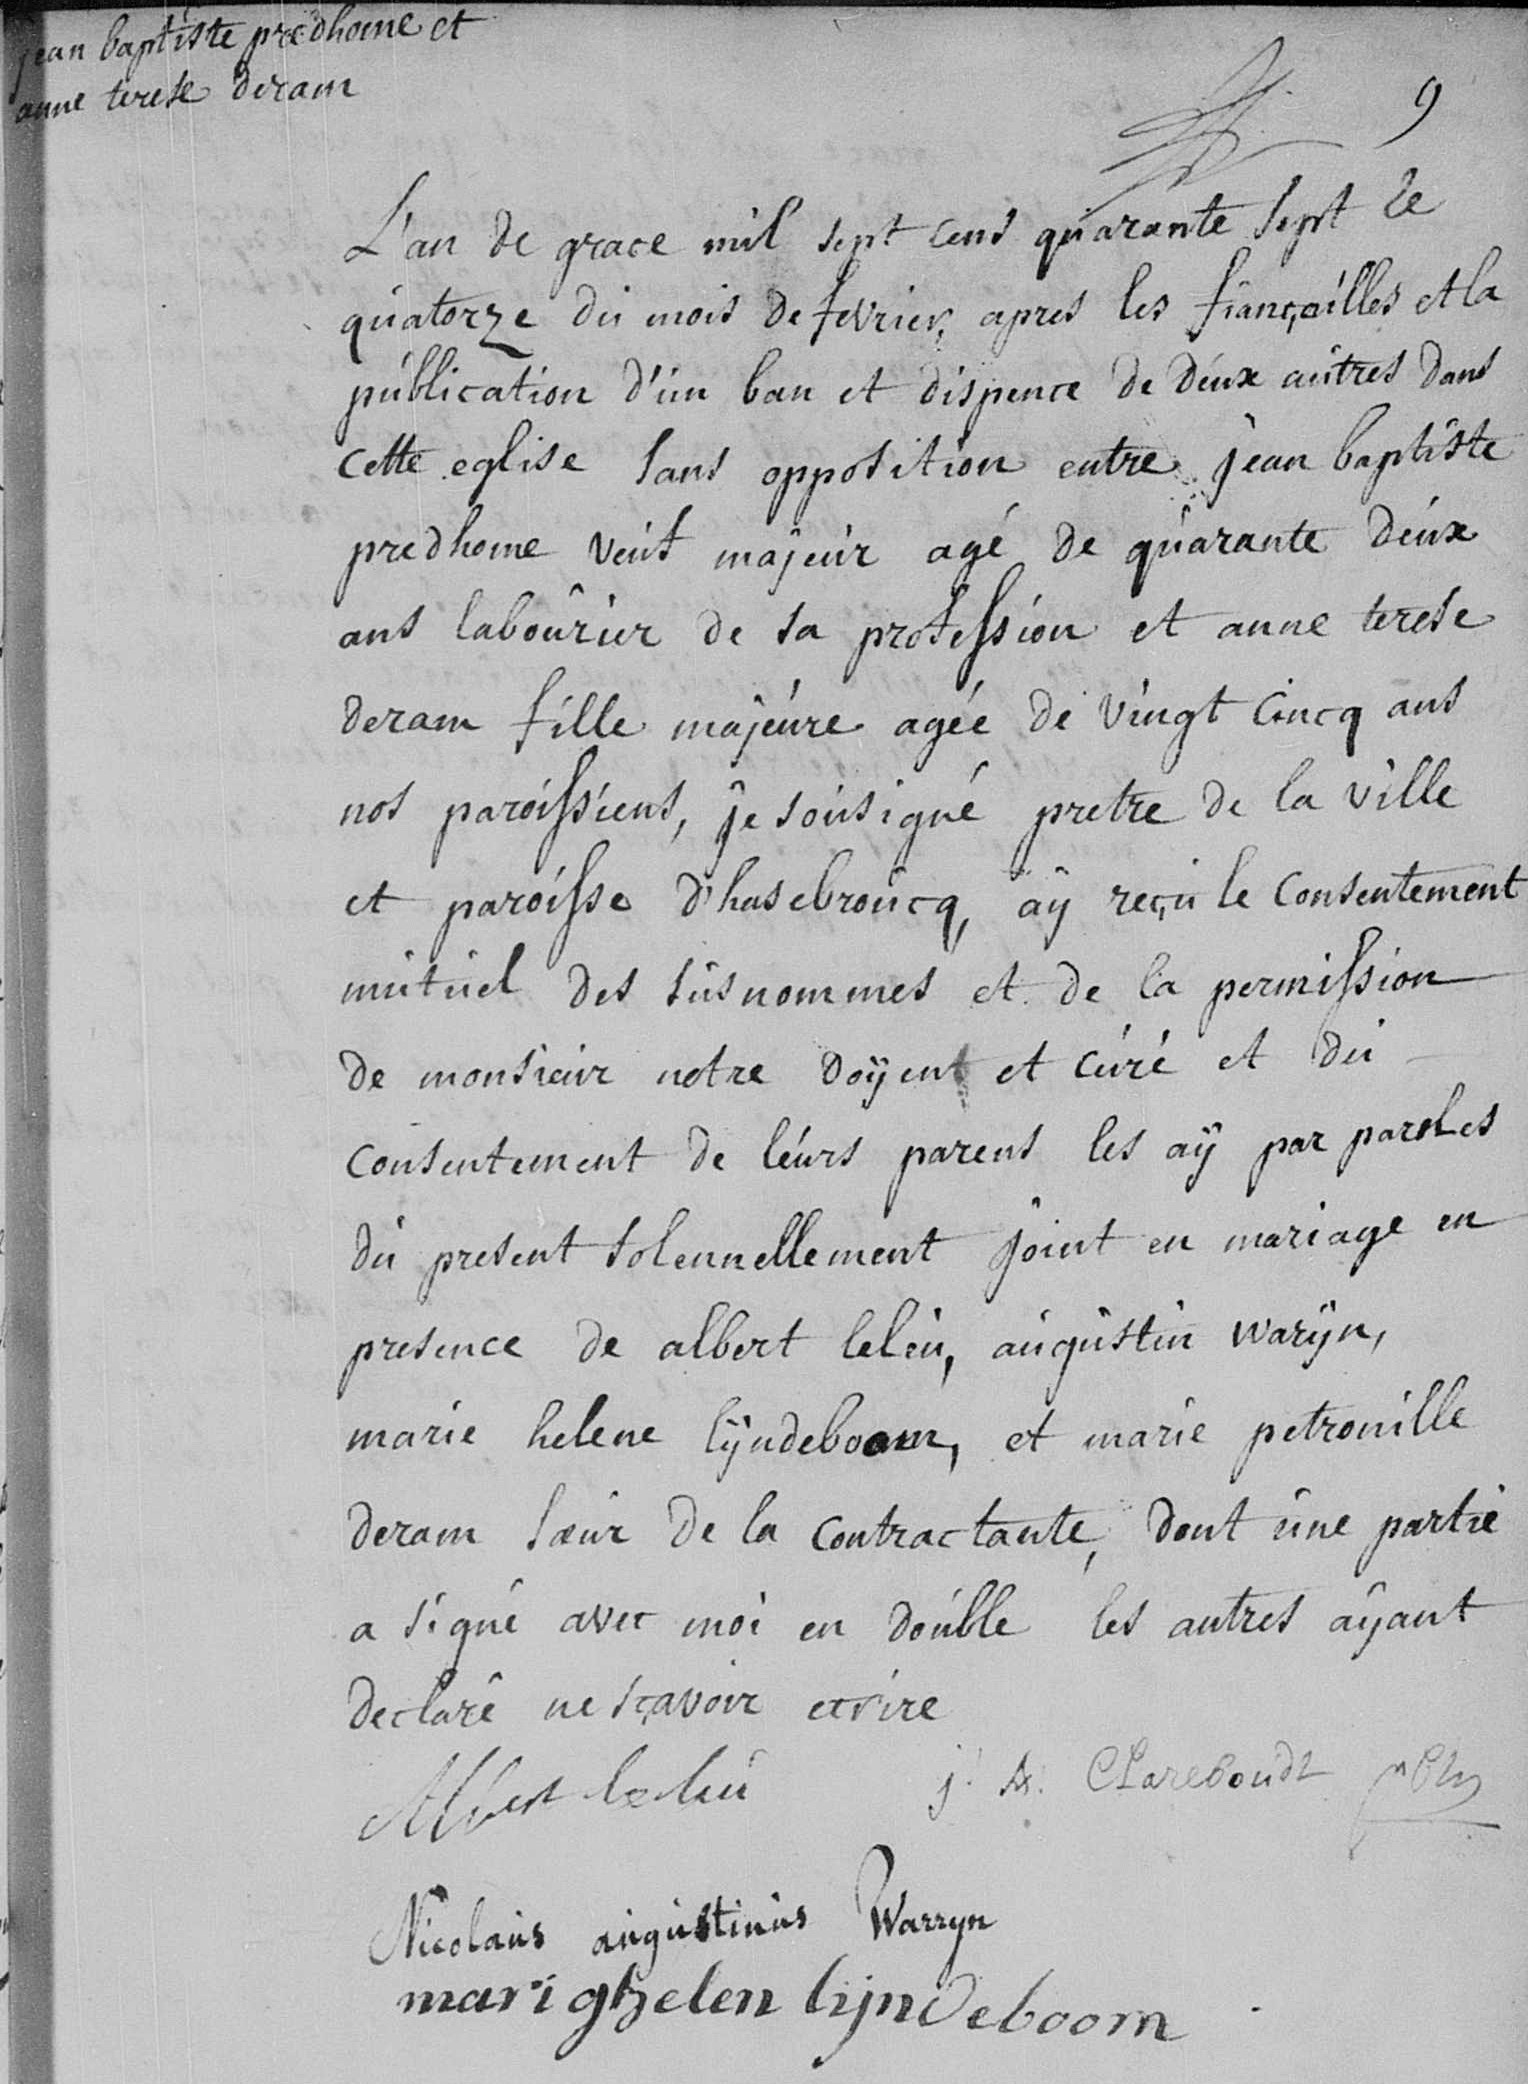 jean baptiste predhome et
anne terese deram
9
L'an de grace mil sept cens quarante sept le
quatorze du mois de fevrier, apres les fiançailles et la
publication d'un ban et dispence de deux autres dans
cette eglise sans opposition entre jean baptiste
predhome veuf majeur agé de quarante deux
ans labourier de sa profession et anne terese
deram fille majeure agée de vingt cincq ans
nos paroissiens, je sousigné pretre de la ville
et paroisse d'hasebroucq, aÿ reçu le consentement
mutuel des susnommes et de la permission
de monsieur notre doÿent et curé et du
consentement de leurs parens les aÿ par paroles
du present solennellement joint en mariage en
presence de albert leleu, augustin warÿn,
marie helene lÿndeboom, et marie petronille
deram sœur de la contractante, dont une partie
a signé avec moi en double les autres aÿant
declaré ne sçavoir ecrire
Albert leleu j. A. Clareboudt
Nicolaus augustinus Warryn
marighelen lijndeboom